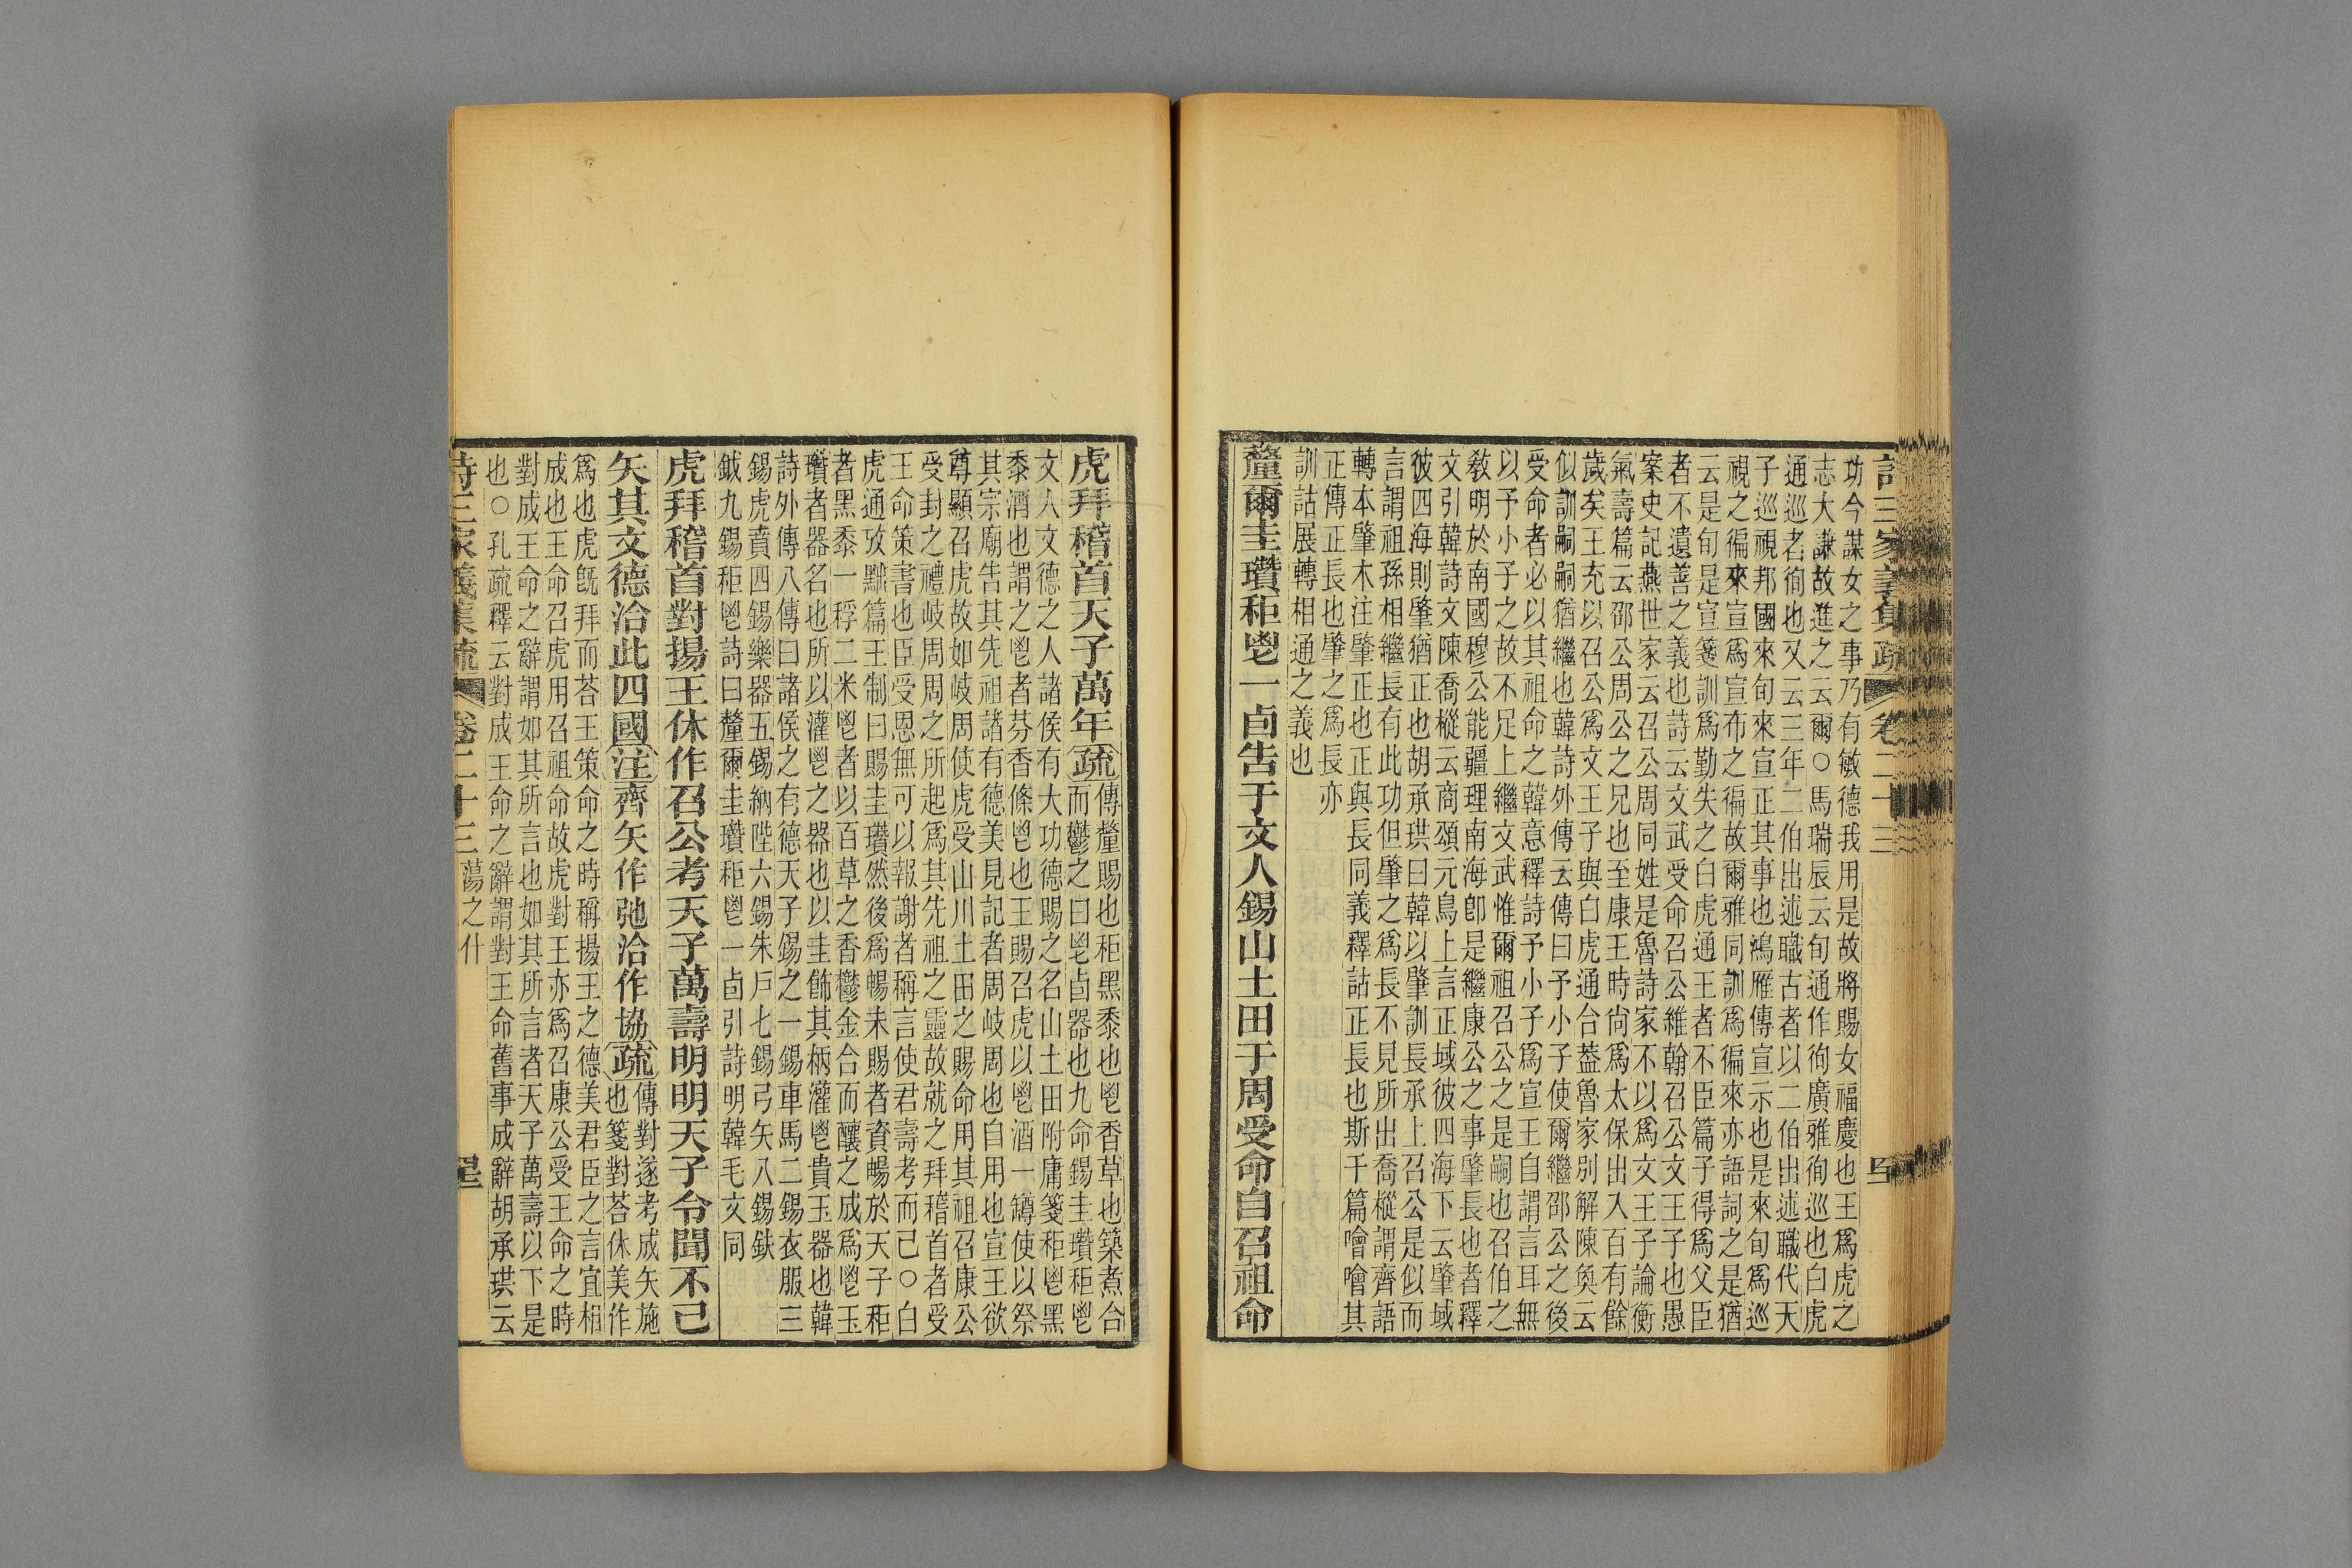 詩三家義集疏 卷二十三
功今謀女之事乃有敏德我用是故將賜女福慶也王爲虎之
志大謙故進之云爾○馬瑞辰云旬通作徇廣雅徇巡也白虎
通巡者徇也又云三年二伯出述職古者以二伯出述職代天
子巡視邦國來旬來宣正其事也鴻雁傳宣示也是來旬爲巡
視之徧來宣爲宣布之徧故爾雅同訓爲徧來亦語詞之是猶
云是旬是宣箋訓爲勤失之白虎通王者不臣篇子得爲父臣
者不遺善之義也詩云文武受命召公維翰召公文王子也愚
案史記燕世家云召公周同姓是魯詩家不以爲文王子論衡
氣壽篇云邵公周公之兄也至康王時尙爲太保出入百有餘
歲矣王充以召公爲文王子與白虎通合葢魯家別解陳奐云
似訓嗣嗣猶繼也韓詩外傳云傳曰予小子使爾繼邵公之後
受命者必以其祖命之韓意釋詩予小子爲宣王自謂言耳無
以予小子之故不足上繼文武惟爾祖召公之是嗣也召伯之
敎明於南國穆公能疆理南海卽是繼康公之事肇長也者釋
文引韓詩文陳喬樅云商頌元鳥上言正域彼四海下云肇域
彼四海則肇猶正也胡承珙曰韓以肇訓長承上召公是似而
言謂祖孫相繼長有此功但肇之爲長不見所出喬樅謂齊語
轉本肇木注肇正也正與長同義釋詁正長也斯干篇噲噲其
正傳正長也肇之爲長亦
訓詁展轉相通之義也
釐爾圭瓚秬鬯一卣告于文人錫山土田于周受命自召祖命
虎拜稽首天子萬年疏傳釐賜也秬黑黍也鬯香草也築煮合
而鬱之曰鬯卣器也九命錫圭瓚秬鬯
文人文德之人諸侯有大功德賜之名山土田附庸箋秬鬯黑
黍酒也謂之鬯者芬香條鬯也王賜召虎以鬯酒一罇使以祭
其宗廟告其先祖諸有德美見記者周岐周也自用也宣王欲
尊顯召虎故如岐周使虎受山川土田之賜命用其祖召康公
受封之禮岐周周之所起爲其先祖之靈故就之拜稽首者受
王命策書也臣受恩無可以報謝者稱言使君壽考而已○白
虎通攷黜篇王制曰賜圭瓚然後爲暢未賜者資暢於天子秬
者黑黍一稃二米鬯者以百草之香鬱金合而釀之成爲鬯玉
瓚者器名也所以灌鬯之器也以圭飾其柄灌鬯貴玉器也韓
詩外傳八傳曰諸侯之有德天子錫之一錫車馬二錫衣服三
錫虎賁四錫樂器五錫納陛六錫朱戶七錫弓矢八錫鈇
鉞九錫秬鬯詩曰釐爾圭瓚秬鬯一卣引詩明韓毛文同
虎拜稽首對揚王休作召公考天子萬壽明明天子令聞不已
矢其文德洽此四國注齊矢作弛洽作協疏傳對遂考成矢施
也箋對荅休美作
爲也虎旣拜而荅王策命之時稱揚王之德美君臣之言宜相
成也王命召虎用召祖命故虎對王亦爲召康公受王命之時
對成王命之辭謂如其所言也如其所言者天子萬壽以下是
也○孔疏釋云對成王命之辭謂對王命舊事成辭胡承珙云
詩三家義集疏 卷二十三 蕩之什